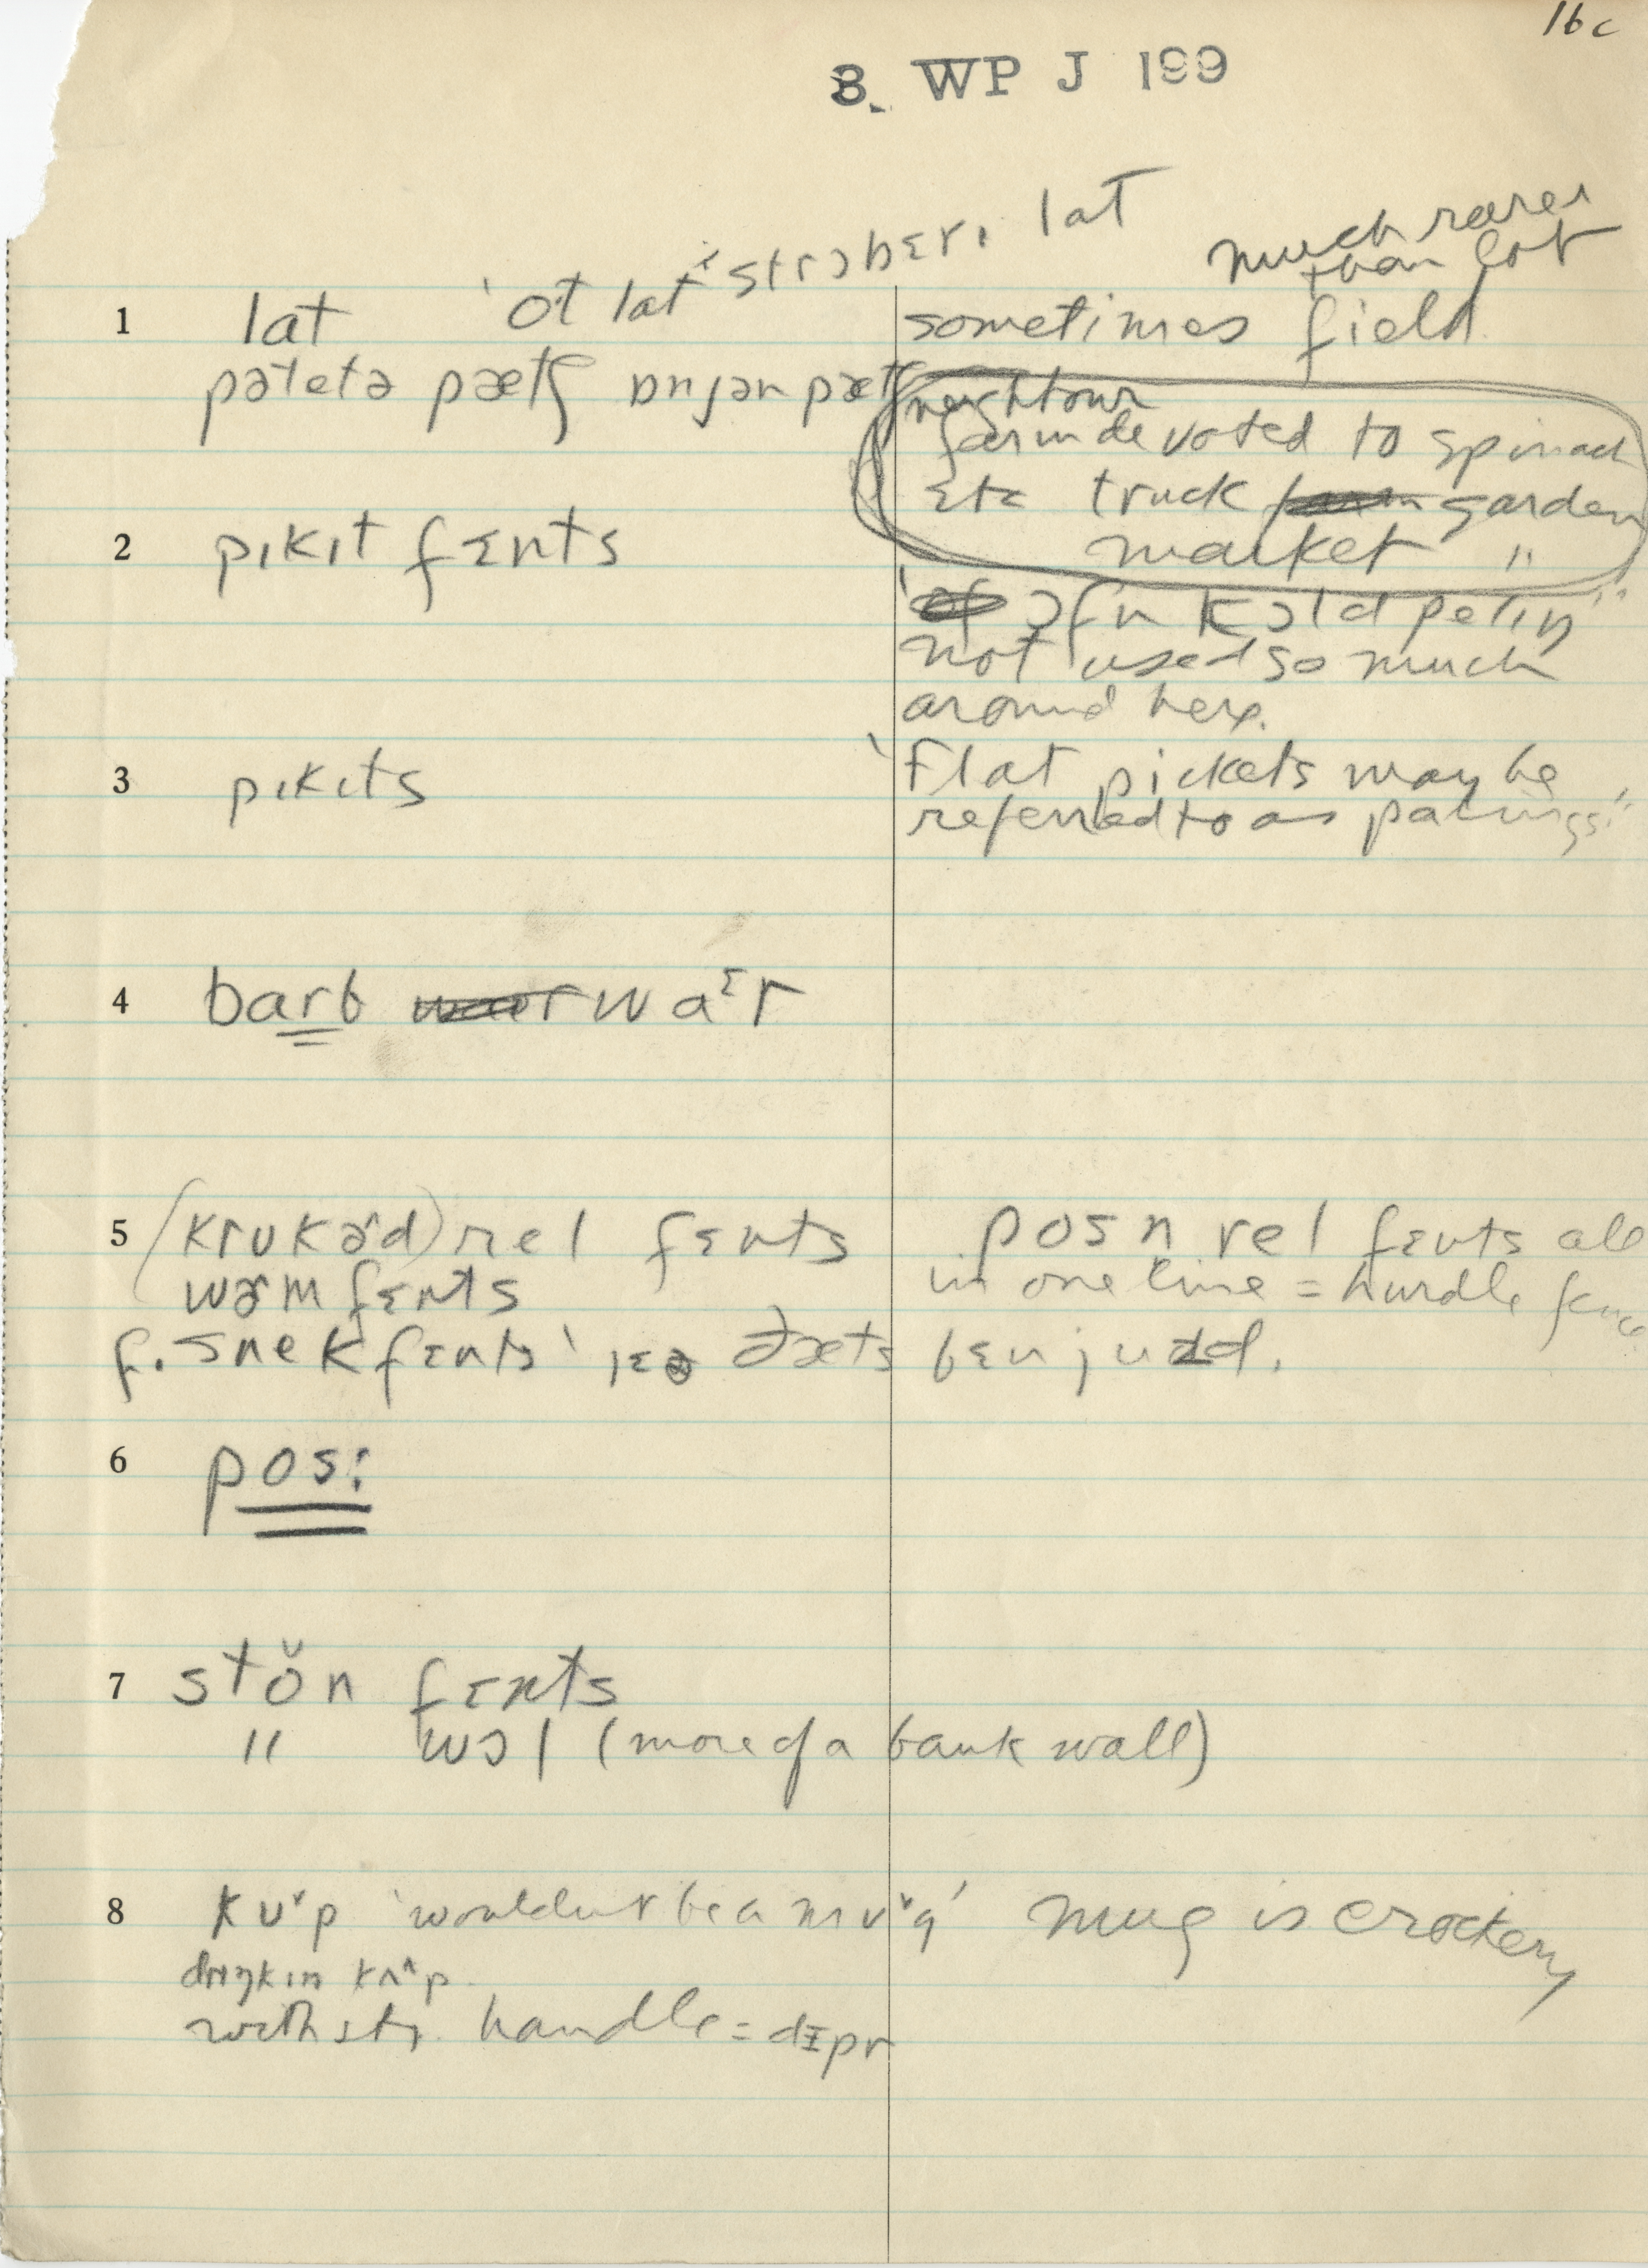 16c
3. WP J 199
1 lat 'ot lat' strɔbɛrɩ lat
much rarer
than lot
sometimes field
pətetə pætʃ ɒnjən pætʃ
neighbour
farm devoted to spinach
etc truck garden
market "
2 pɩkɩt fɛnts
'ɔfn kɔld pelɩŋ"
not used so much
around here.
3 pɩkɩts
'flat pickets may be
referred to as palings"
4 barb waᵋr
5 (krʊkɚd) rel fɛnts
wɚm fɛnts
f. snek fɛnts' jɛə ðæts bɛn juzd.
posn rel fɛnts all
in one line = hurdle fence
6 pos:
7 stŏn fɛnts
" wɔl (more of a bank wall)
8 kʊ˅p 'wouldn't be a mʊ˅g' mug is crockery
drɩŋkɩn kʌ^p
with str. handle = dɪpr